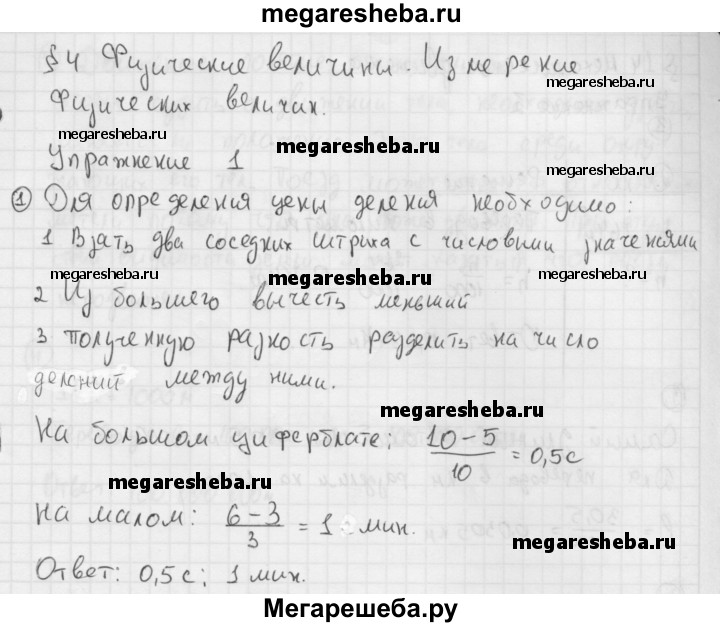 megaresheba.ru
§4 Физические величины. Измерение
megaresheba.ru
физических величин.
megaresheba.ru
megaresheba.ru
Упражнение 1
megaresheba.ru
① Для определения цены деления необходимо:
1 Взять два соседних штриха с числовыми значениями
megaresheba.ru
megaresheba.ru
megaresheba.ru
2 Из большего вычесть меньший
3 полученную разность разделить на число
делений между ними.
megaresheba.ru
На большом циферблате: (10-5)/10 = 0,5с
megaresheba.ru
На малом: (6-3)/3 = 1 мин.
megaresheba.ru
Ответ: 0,5с; 1 мин.
megaresheba.ru
Мегарешеба.ру